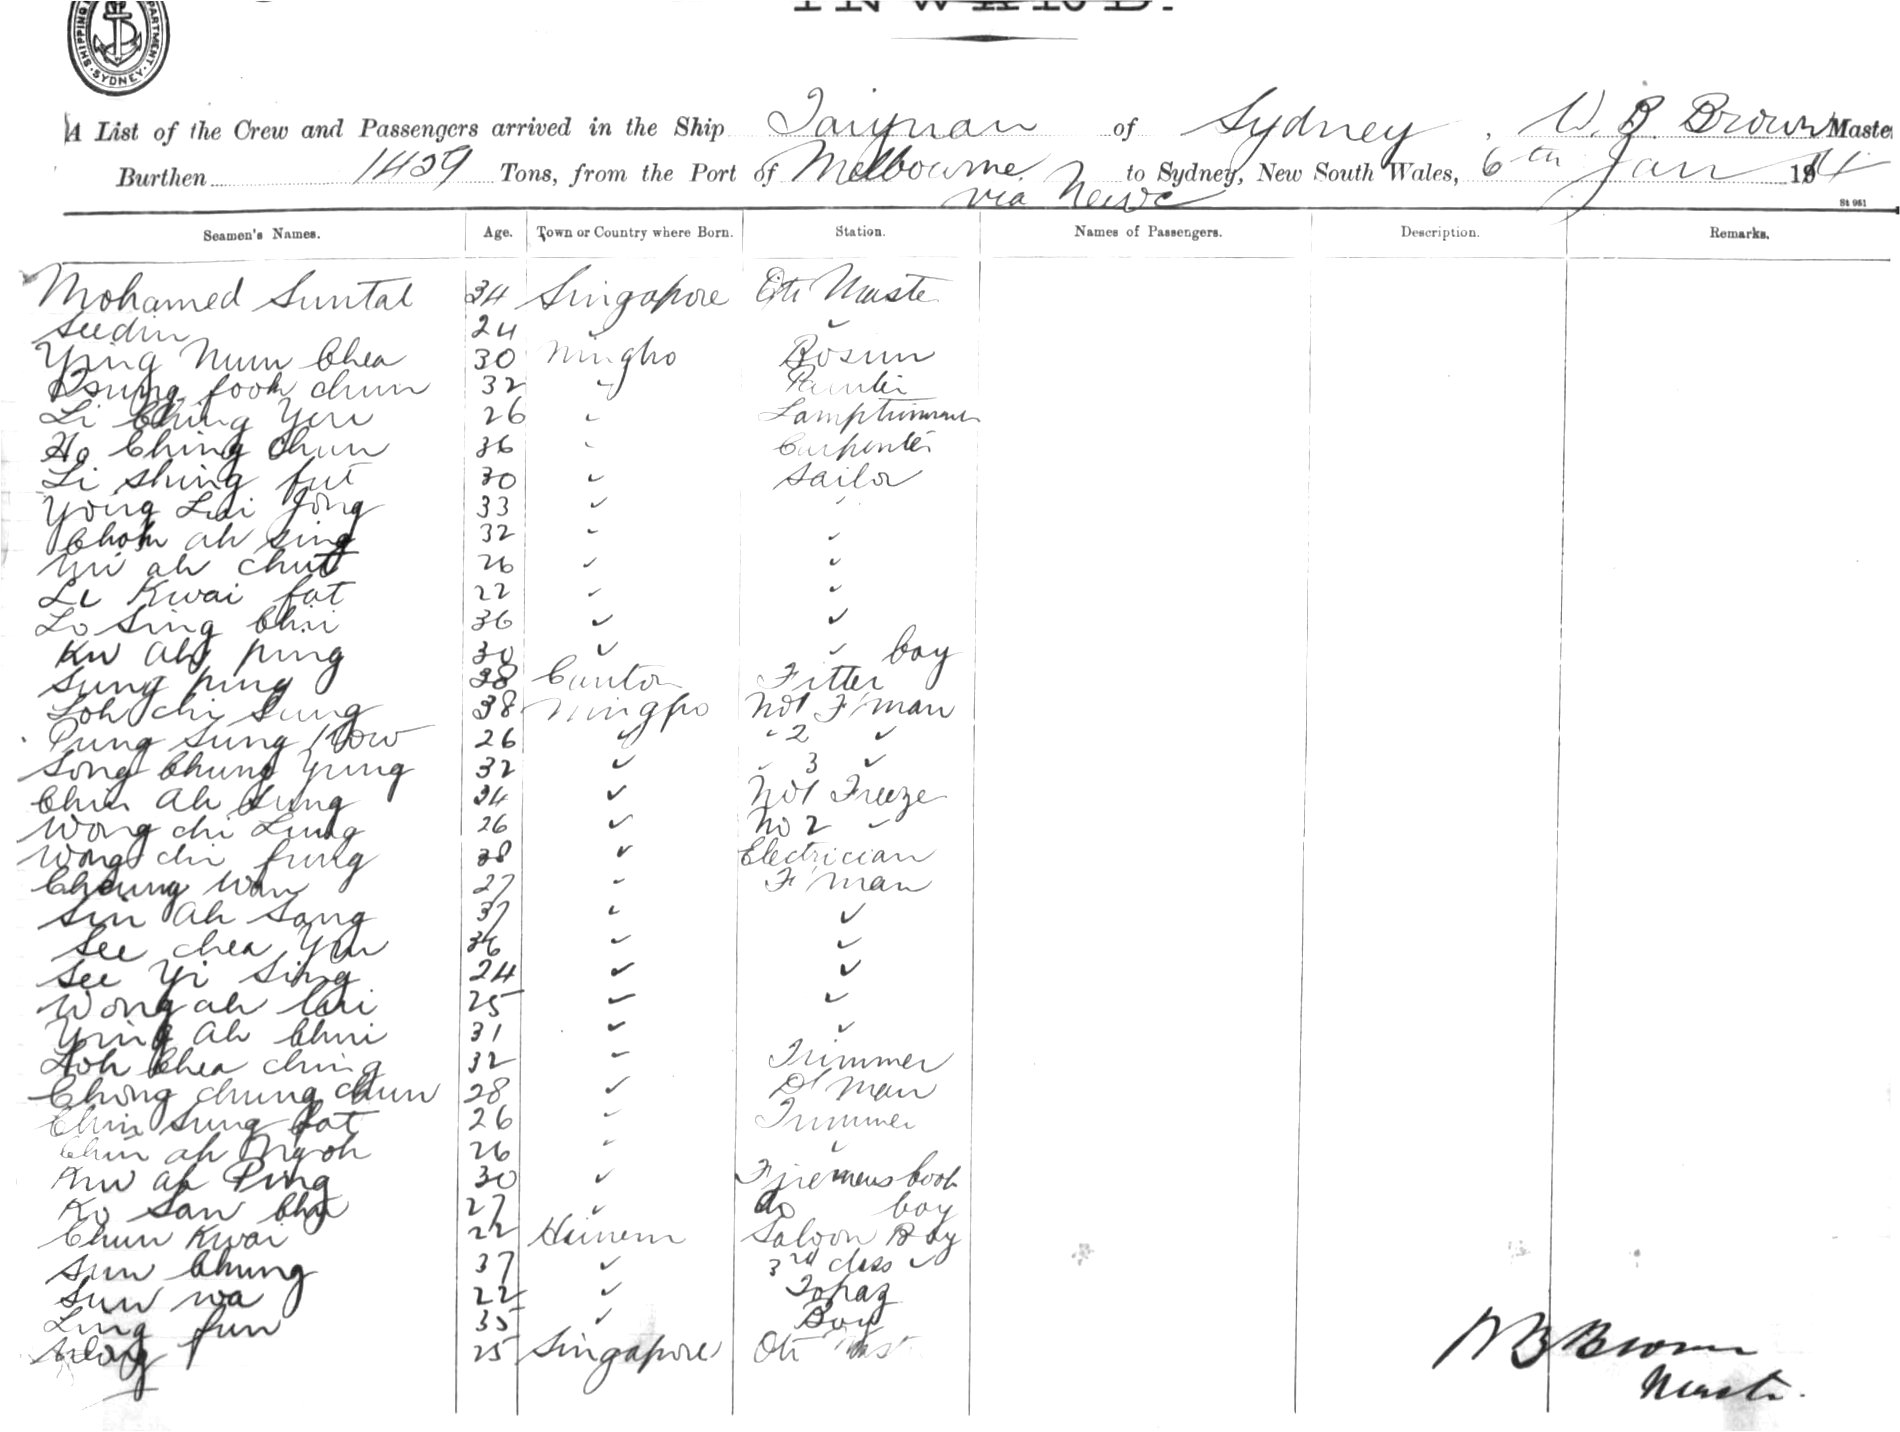 INWARD.
SHIPPING DEPARTMENT · SYDNEY ·
A List of the Crew and Passengers arrived in the Ship Taiyuan of Sydney, W. B. Brown Master
Burthen 1459 Tons, from the Port of Melbourne to Sydney, New South Wales, 6th Jan 19
via Newc
St 961
Seamen's Names. Age. Town or Country where Born. Station. Names of Passengers. Description. Remarks.
Mohamed Suntal 34 Singapore Qtr Maste
Seedin 24 "
Ying Num Chea 30 Ningbo Bosun
fook chun 32 " Painter
Li Ching You 26 " Lamptrimmer
Ho Ching Chun 36 " Carpenter
Li Shing fut 30 " Sailor
Yong Lai Jong 33 " "
Choh ah sing 32 " "
ah chut 26 " "
Li Kwai fat 22 " "
Lo Sing Chui 36 " "
Ku Ah ping 30 " " boy
Sung ping 38 Canton Fitter
Loh chi Sung 38 Ningpo No 1 F'man
Pung Sung How 26 " " 2 "
Song Chung Yung 32 " " 3 "
Chin Ah Sung 34 " No 1 Freeze
Wong chi Lung 26 " No 2 "
Wong chi fung 38 " Electrician
Cheung Wan 27 " F'man
Sin Ah Song 37 " "
See chea You 36 " "
See Yi Sing 24 " "
Wong ah Chi 25 " "
Ying Ah Chui 31 " "
Loh Chea ching 32 " Trimmer
Chong chung chun 28 " D'man
Chin Sung fat 26 " Trimmer
Chin ah Ngoh 26 " "
Kiu ah Ping 30 " Firemens Cook
Ko San 27 " do boy
Chun Kwai 22 Hainem Saloon Boy
Sun Chung 37 " 3rd class "
Sun wa 22 " Topaz
Ling fun 35 " Boy
25 Singapore Qtr
W B Brown
Master.